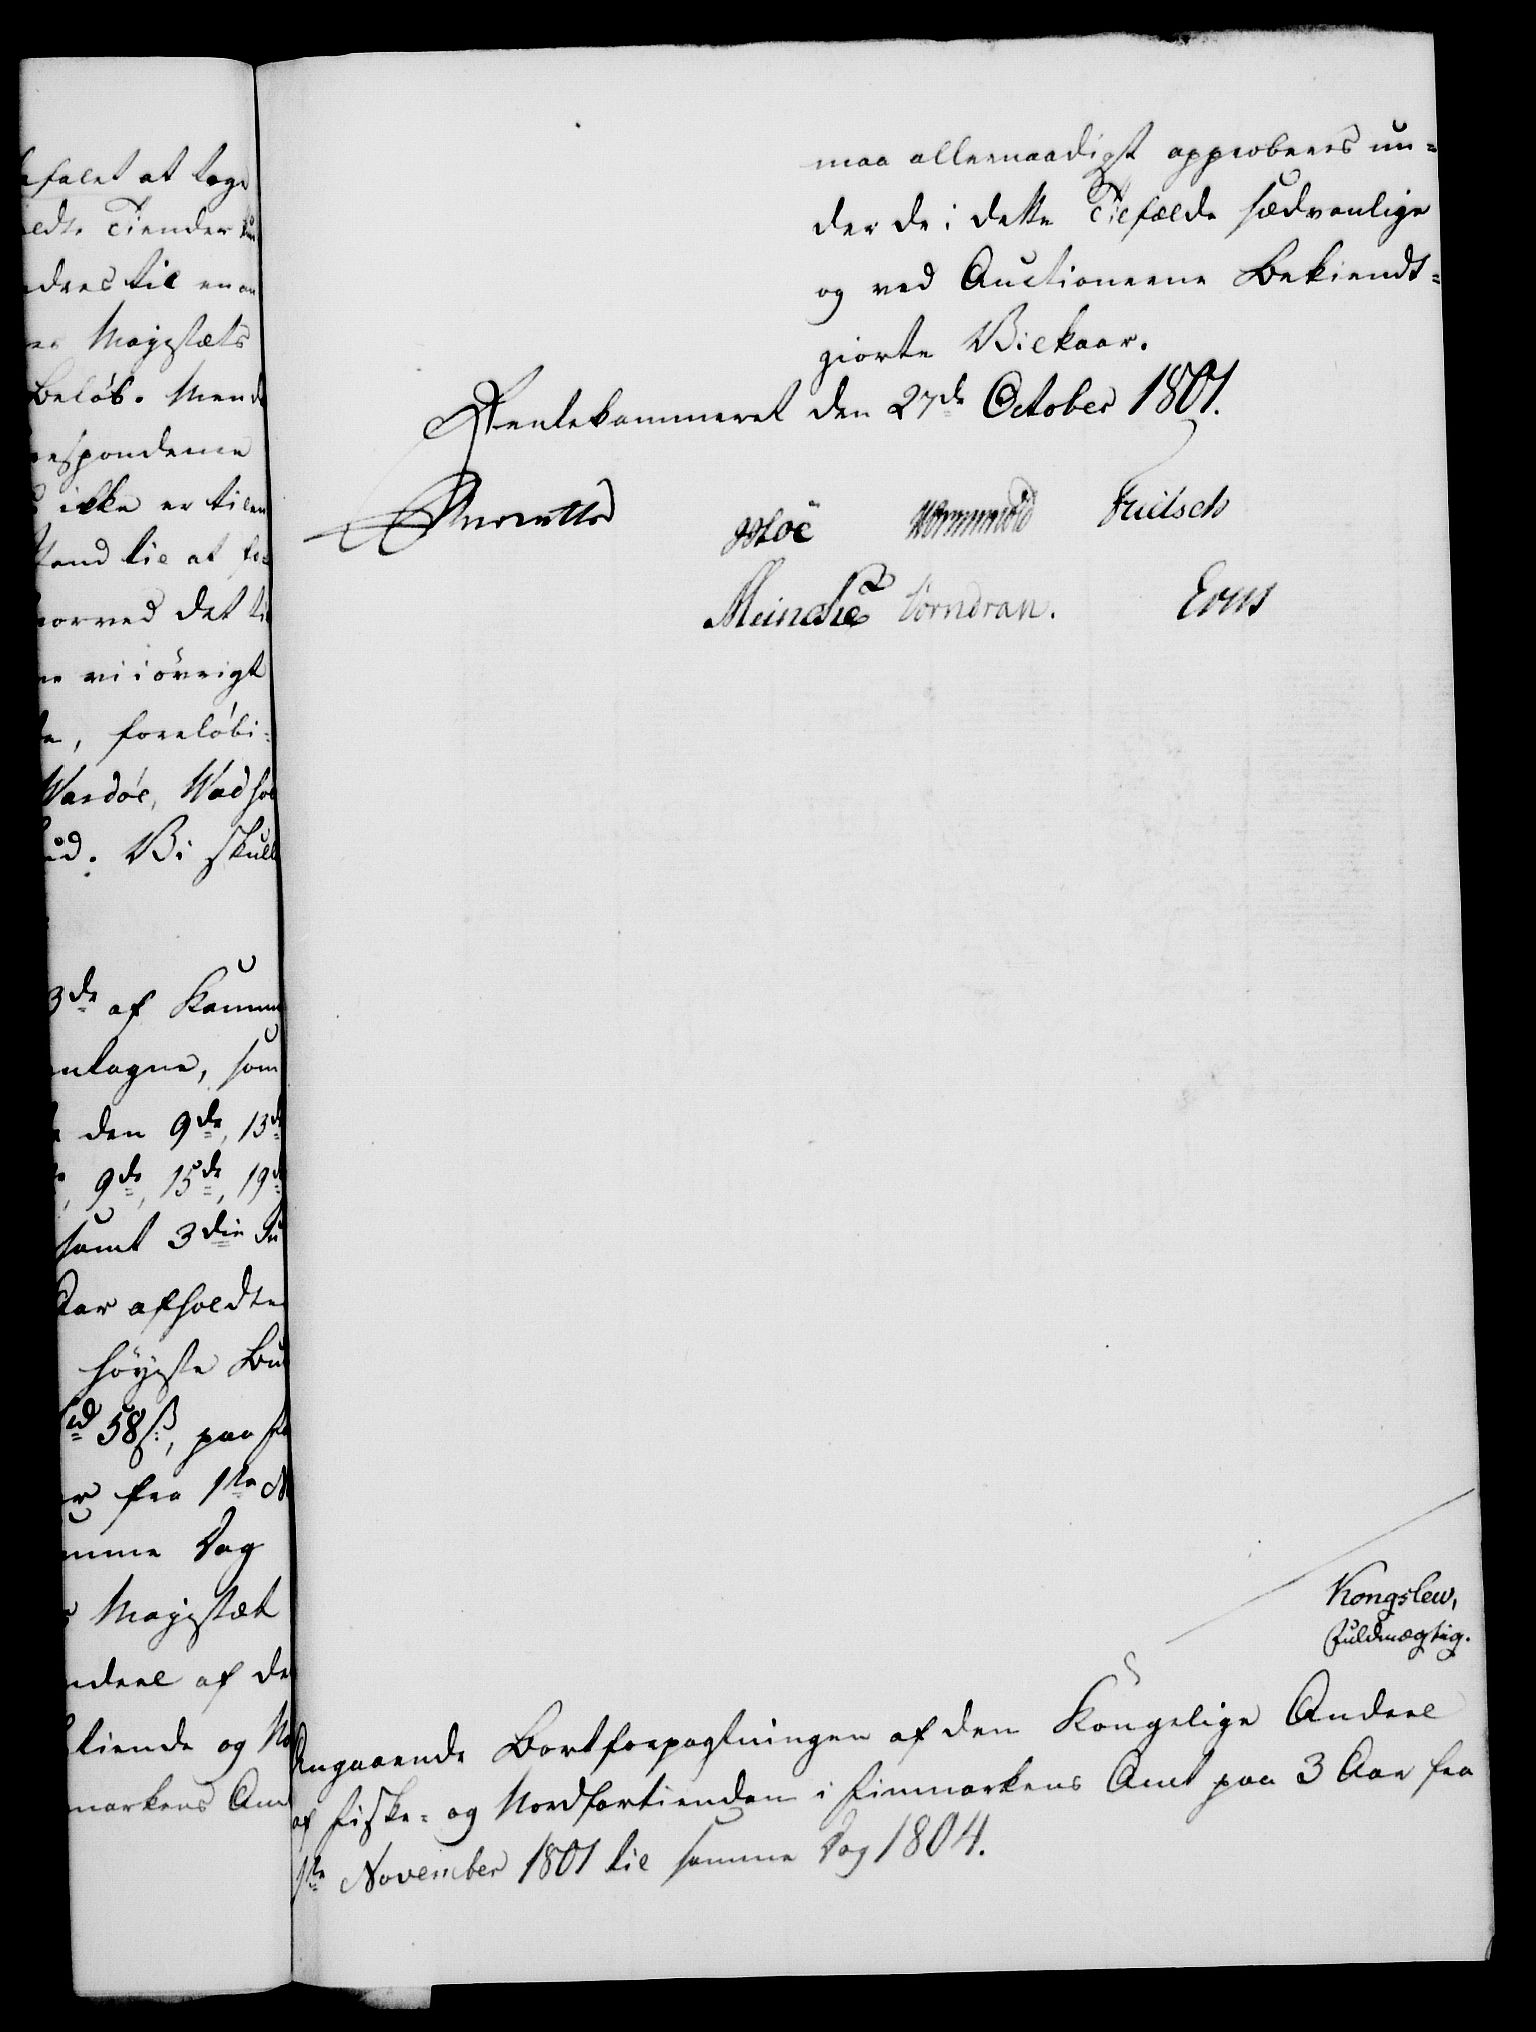 efalet at tage
eldte Tiender
edres til en an
er Majestæts
Beløb. Mend
respondeme
ikke er tilen
stand til at
vorved det
vi i øvrigt
foreløbi-
Wardøe, Wadsøe
Vi skull
3de af Kamm
antagne, som
den 9de, 13de
9de, 15de, 19de
samt 3die Ju
Aar afholdte
høyeste Bud
58 ß, paa
fra 1ste N
amme Dag
Majestæt
ndeel af de
tiende og No
markens Am
maa allernaadigst approberes un=
der de i dette Tilfælde sædvanlige
og ved Auctionerne Bekiendt=
giorte Vilkaar.
Rentekammeret den 27de October 1801.
Wormskiold Fritsch
Meinche Vorndran.
Kongslew,
Fuldmægtig.
Angaaende Bortforpagtningen af den Kongelige Andeel
af Fiske= og Nordfartienden i Finmarkens Amt paa 3 Aar fra
1ste November 1801 til samme Dag 1804.